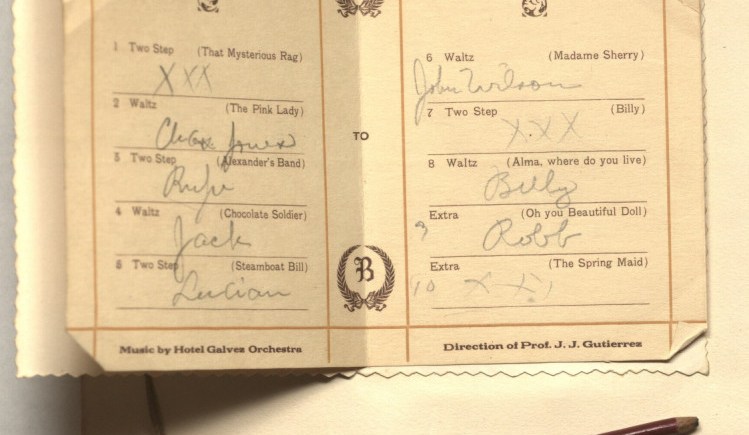 1 Two Step (That Mysterious Rag)
XXX
2 Waltz (The Pink Lady)
Chas. Jones
3 Two Step (Alexander's Band)
Rufe
4 Waltz (Chocolate Soldier)
Jack
5 Two Step (Steamboat Bill)
Lucian
Music by Hotel Galvez Orchestra
TO
B
6 Waltz (Madame Sherry)
John Wilson
7 Two Step (Billy)
XXX
8 Waltz (Alma, where do you live)
Billy
9 Extra (Oh you Beautiful Doll)
Robb
Extra (The Spring Maid)
10 X X
Direction of Prof. J. J. Gutierrez